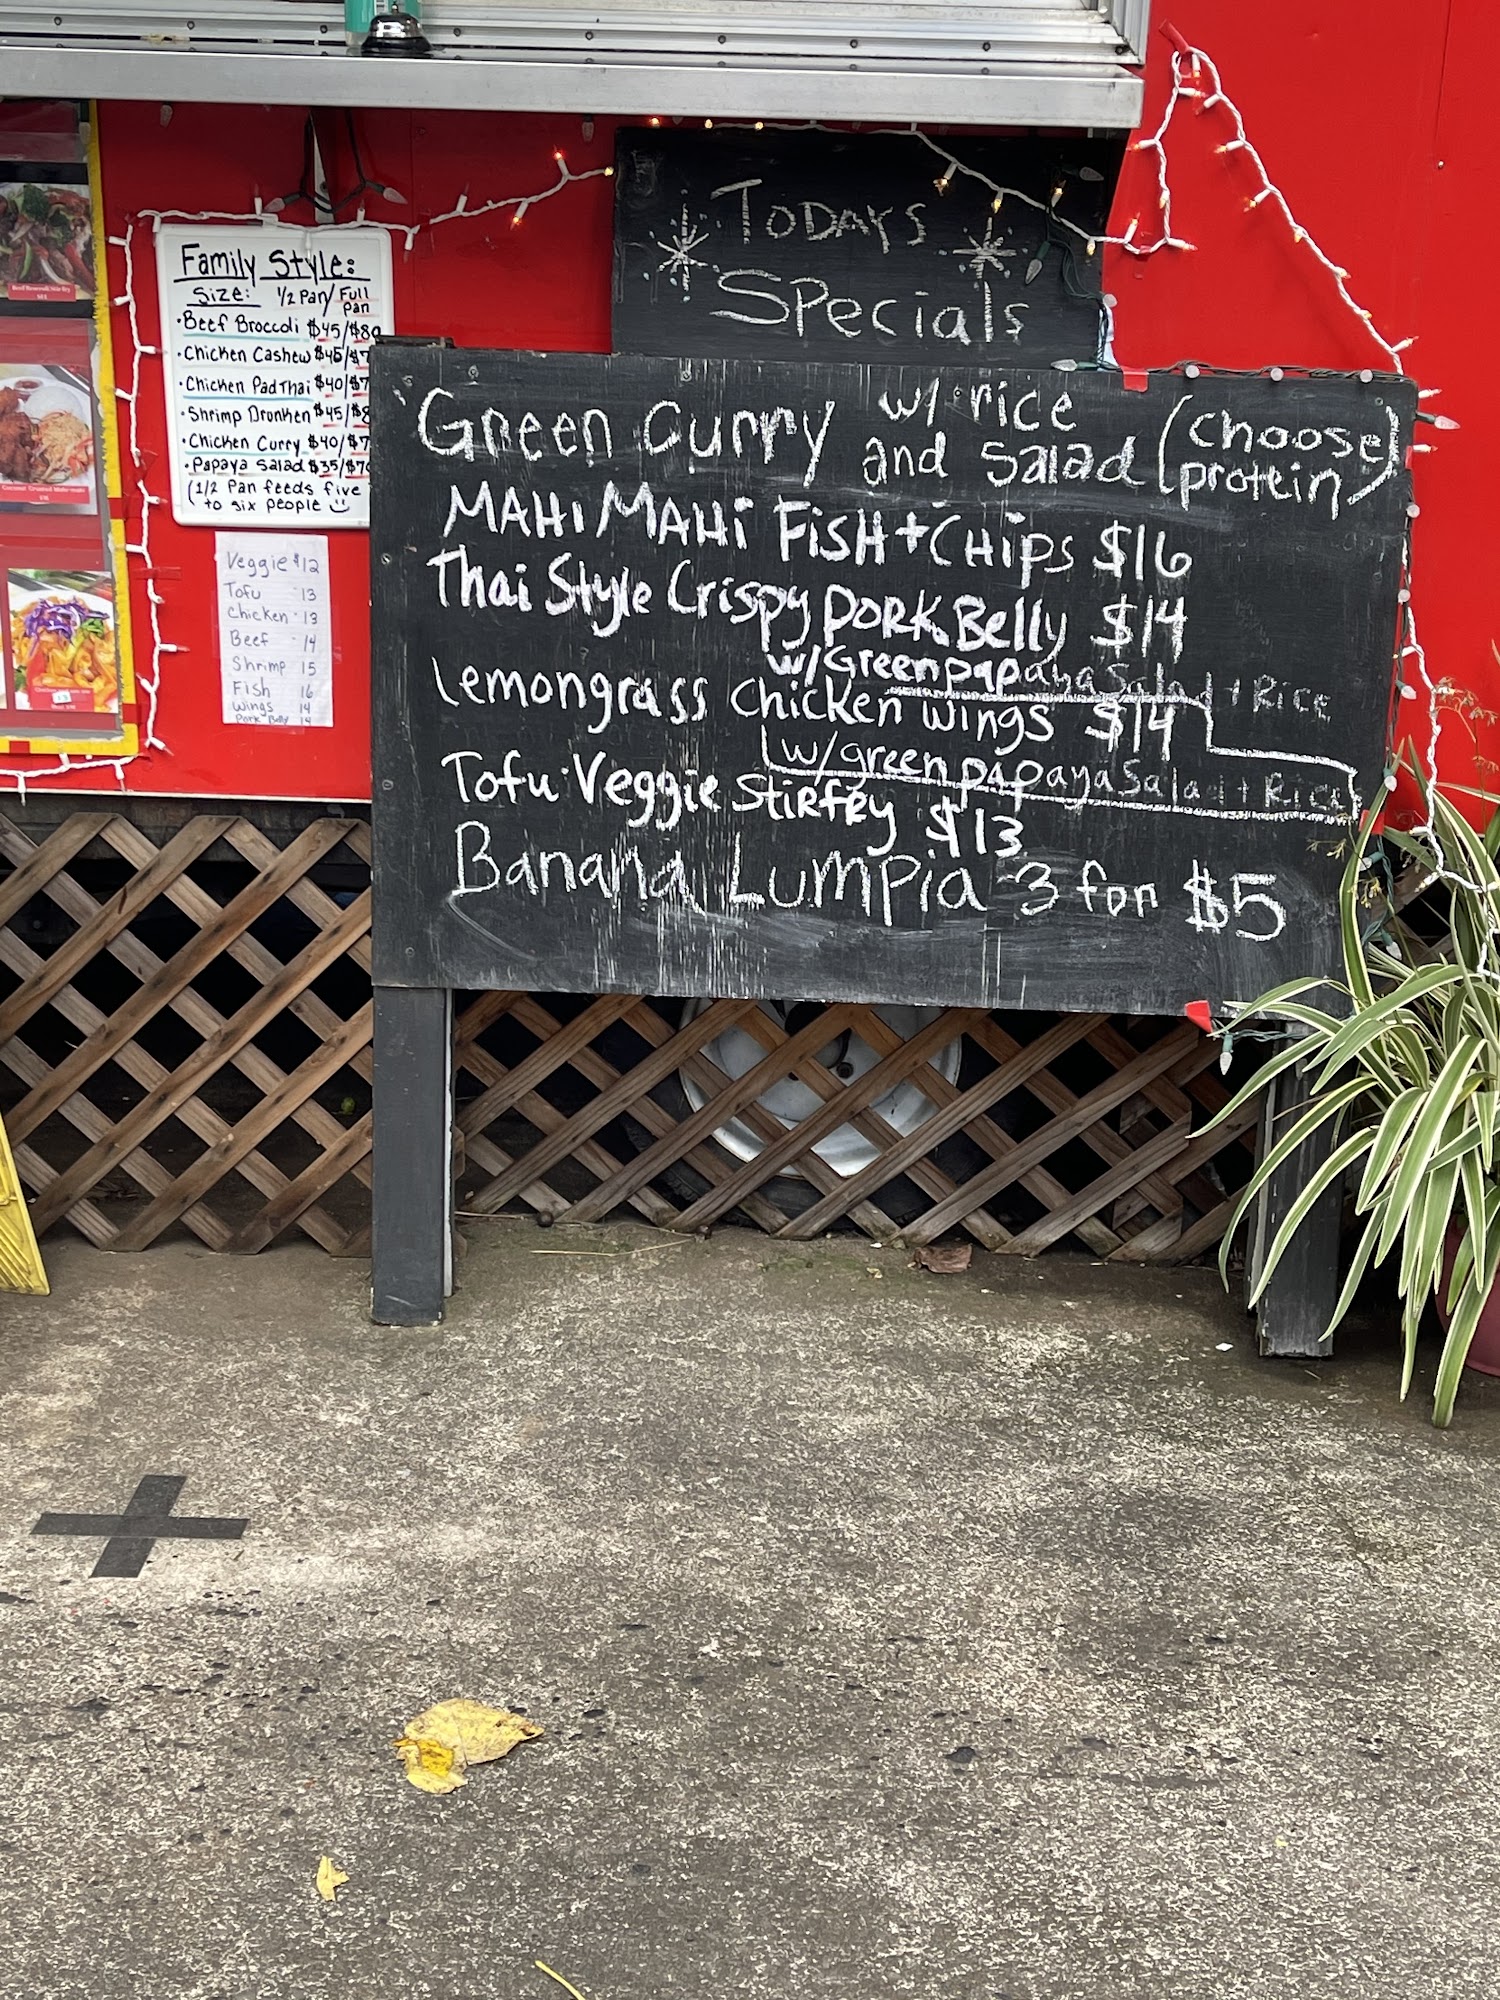 TODAYS
Specials
Family Style:
Size: 1/2 Pan/ Full Pan
• Beef Broccoli $45/$80
• Chicken Cashew $45/$7
• Chicken Pad Thai $40/$7
• Shrimp Drunken $45/$8
• Chicken Curry $40/$7
• Papaya Salad $35/$70
(1/2 Pan feeds five
to six people
Veggie $12
Tofu 13
Chicken 13
Beef 14
Shrimp 15
Fish 16
Wings 14
Pork Belly 14
Green Curry w/ rice and Salad (choose protein)
MAHI MAHI FISH + CHIPS $16
Thai Style Crispy PORK Belly $14
w/Green papaya Salad + Rice
Lemongrass Chicken Wings $14
w/green papaya Salad + Rice
Tofu Veggie Stirfry $13
Banana Lumpia 3 for $5